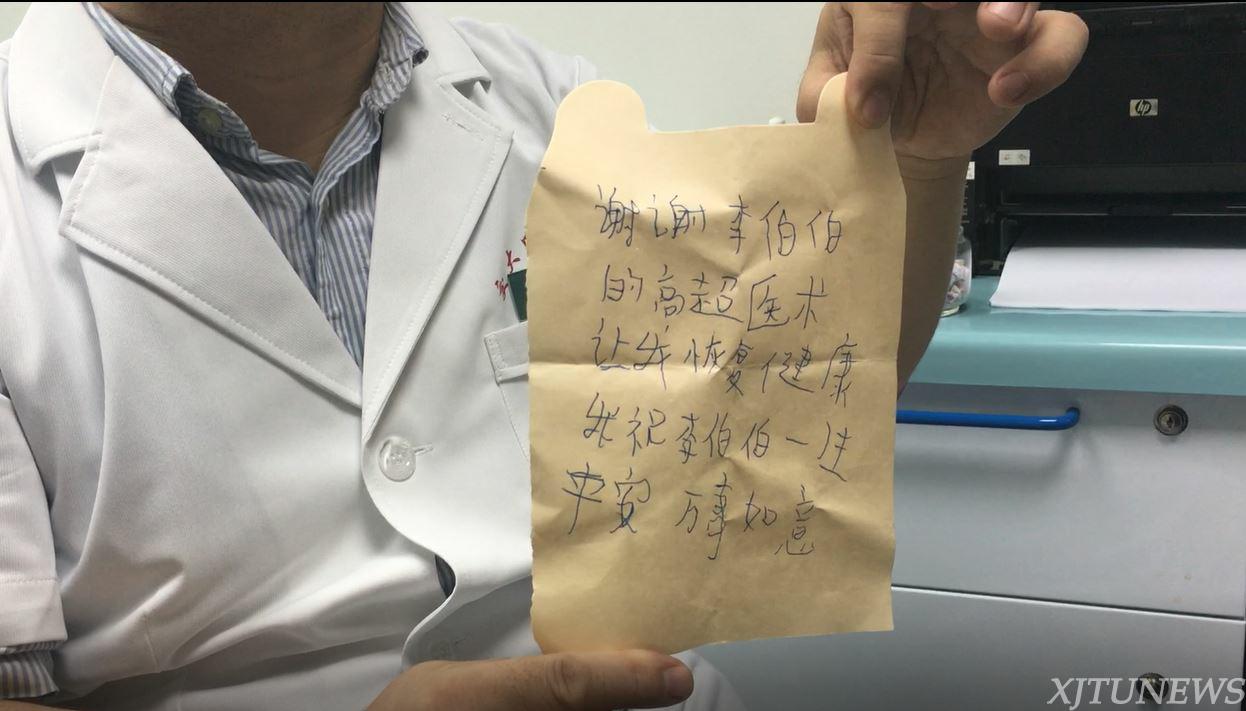 谢谢李伯伯
的高超医术
让我恢复健康
我祝李伯伯一生
平安 万事如意
hp
XJTUNEWS